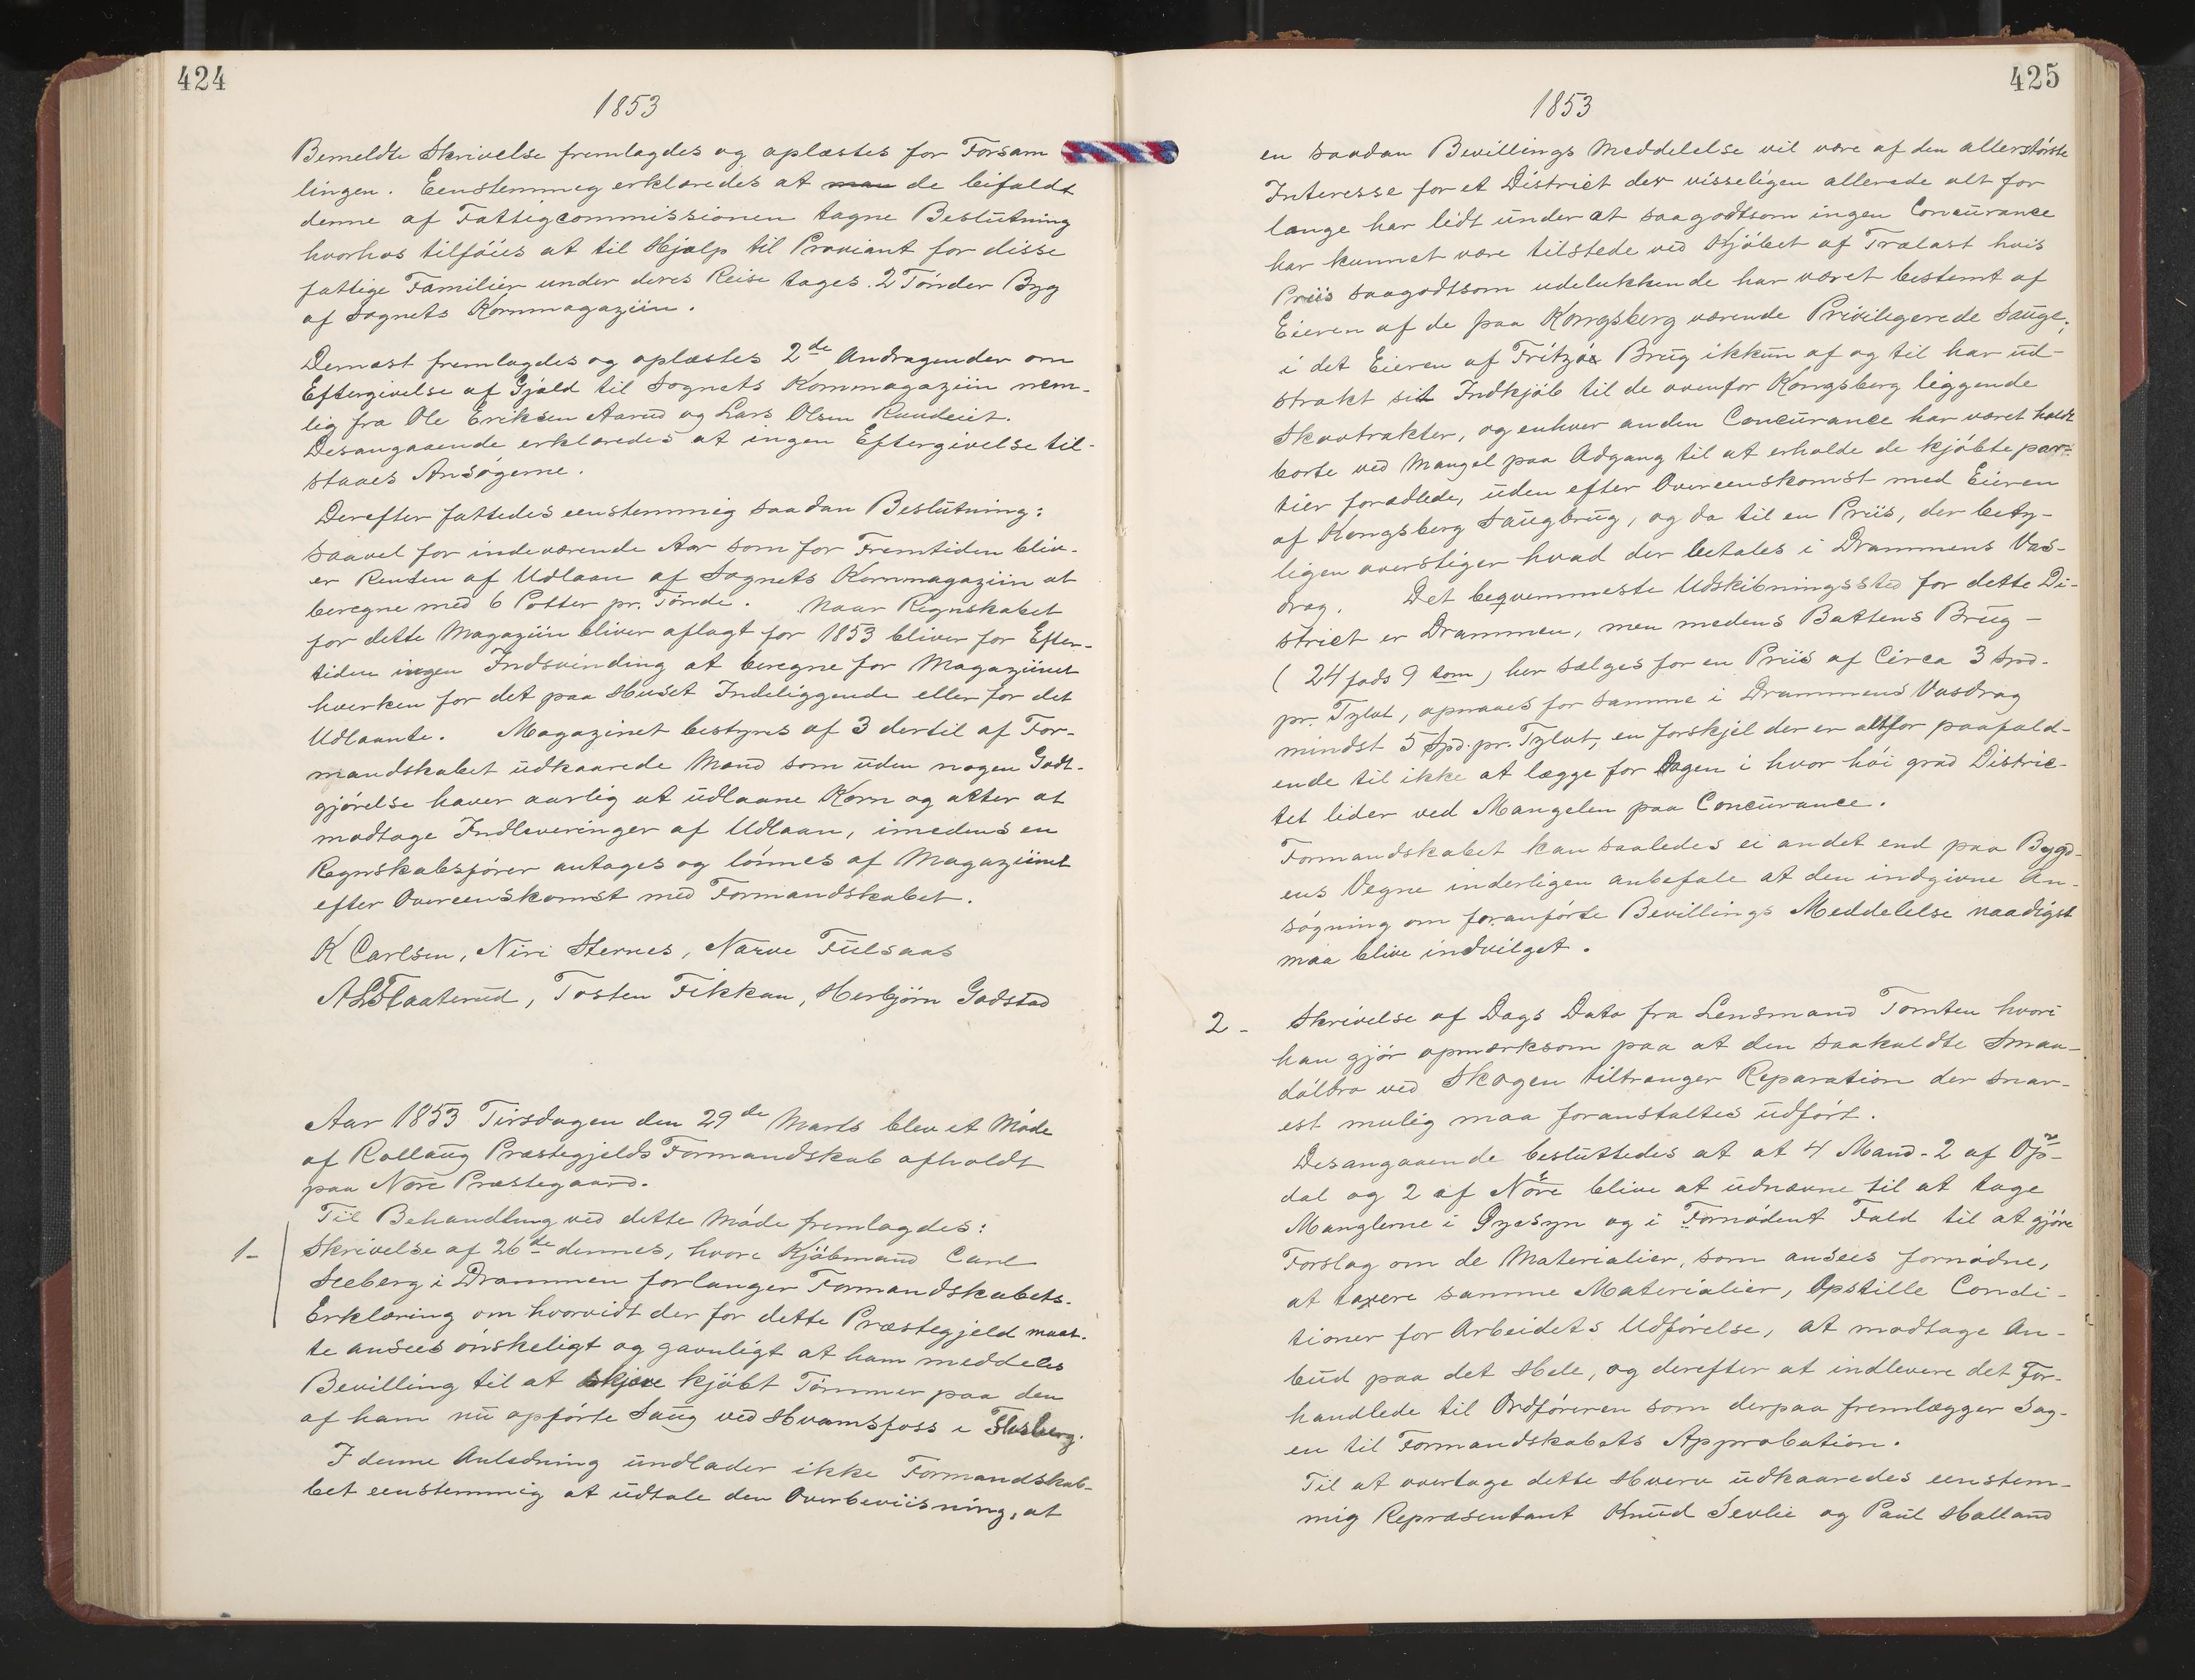 424
1853
Bemeldte Skrivelse fremlagdes og oplæstes for Forsam
lingen. Eenstemmig erklæredes at man de bifaldt
denne af Fattigcommissionen tagne Beslutning
hvorhos tilföies at til Hjælp til Proviant for disse
fattige Familier under deres Reise tages 2 Tönder Byg
af Sognets Kornmagaziin.
Dernæst fremlagdes og oplæstes 2de Andragender om
Eftergivelse af Gjæld til Sognets Kornmagaziin nem-
lig fra Ole Eriksen Aarud og Lars Olsen
Desangaaende erklæredes at ingen Eftergivelse til-
staaes Ansögerne.
Derefter fattedes eenstemmig saadan Beslutning:
saavel for indeværende Aar som for Fremtiden bliv-
er Renten af Udlaan af Sognets Kornmagaziin at
beregne med 6 Potter pr. Tönde. Naar Regnskabet
for dette Magaziin bliver aflagt for 1853 bliver for Efter-
tiden ingen Indsvinding at beregne for Magaziinet
hverken for det paa Huset Indeliggende eller for det
Udlaante. Magazinet bestyres af 3 dertil af For-
mandskabet udkaarede Mænd som uden nogen Godt-
gjörelse haver aarlig at udlaane Korn og atter at
modtage Indleveringer af Udlaan, imedens en
Regnskabsförer antages og lönnes af Magaziinet
efter Overeenskomst med Formandskabet.
K Carlsen, Niri Sternes, Narve Fulsaas
A Flaaterud, Tosten Fekkan, Herbjörn Gadstad
Aar 1853 Tirsdagen den 29de Marts blev et Möde
af Rollaug Præstegjelds Formandskab afholdt
paa Nore Præstegaard.
Til Behandling ved dette Möde fremlagdes:
1- Skrivelse af 26de dennes, hvori Kjöbmand Carl
Seeberg i Drammen forlanger Formandskabets
Erklæring om hvorvidt der for dette Præstegjeld maat-
te ansees önskeligt og gavnligt at ham meddeles
Bevilling til at skjære kjöbt Tömmer paa den
af ham nu opförte Saug ved Hvamsfoss i Flesberg.
I denne Anledning undlader ikke Formandskab-
bet eenstemmig at udtale den Overbeviisning, at
425
1853
en saadan Bevillings Meddelelse vil være af den allerstörste
Interesse for et District der visseligen allerede alt for
længe har lidt under at saagodtsom ingen Concurance
har kunnet være tilstede ved Kjöbet af Trælast hvis
Priis saagodtsom udelukkende har været bestemt af
Eieren af de paa Kongsberg værende Priviligerede Sauge,
i det Eieren af Fritzöe Brug ikkun af og til har ud-
strakt sit Indkjöb til de ovenfor Kongsberg liggende
Skovtrakter, og enhver anden Concurance har været holdt
borte ved Mangel paa Adgang til at erholde de kjöbte par-
tier forædlede, uden efter Overeenskomst med Eieren
af Kongsberg Saugbrug, og da til en Priis, der bety-
ligen overstiger hvad der betales i Drammens Vas-
drag. Det beqvemmeste Udskibningssted for dette Di-
strict er Drammen, men medens Battens Brug -
( 24 fods 9 tom) her sælges for en Priis af Circa 3 Spd.
pr. Tylvt, opnaaes for samme i Drammens Vasdrag
mindst 5 Spd. pr. Tylvt, en forskjel der er altfor paafald-
ende til ikke at lægge for Dagen i hvor höi grad Distric-
tet lider ved Mangelen paa Concurance.
Formandskabet kan saaledes ei andet end paa Bygd-
ens Vegne inderligen anbefale at den indgivne An-
sögning om foranförte Bevillings Meddelelse naadigst
maa blive indvilget.
2 - Skrivelse af Dags Dato fra Lensmand Tomten hvori
han gjör opmærksom paa at den saakaldte Smaa-
dölbro ved Skogen tiltrænger Reparation der snar-
est mulig maa foranstaltes udfört.
Desangaaende besluttedes at at 4 Mænd - 2 af Op-
dal og 2 af Nore blive at udnævne til at tage
Manglerne i Öyesyn og i Fornödent Fald til at gjöre
Forslag om de Materialier, som ansees fornödne,
at taxere samme Materialier, Opstille Condi-
tioner for Arbeidets Udförelse, at modtage An-
bud paa det Hele, og derefter at indlevere det For-
handlede til Ordföreren som derpaa fremlægger Sag-
en til Formandskabets Approbation.
Til at overtage dette Hverv udkaaredes eenstem-
mig Repræsentant Knud Sevlie og Paul Halland